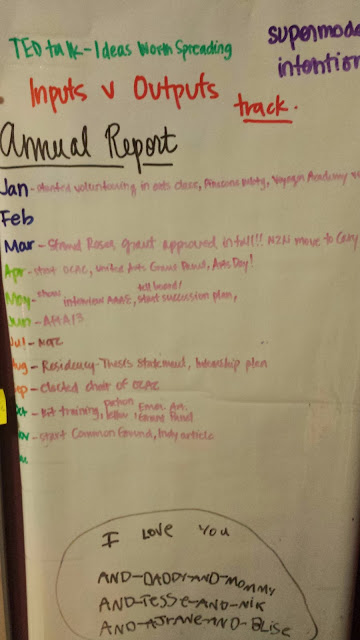 TEDtalk-Ideas Worth Spreading
supermode
intention
Inputs v Outputs
track.
Annual Report
Jan - started volunteering in arts class, Voyager Academy
Feb
Mar - Strand Roses grant approved in full!! N2N move to Cary
Apr - start OCAC, United Arts Grans Panel, Arts Day!
May - show, interview AAAE, tell board!, start succession plan,
Jun - AHA13
Jul - NOTC
ug - Residency-Thesis Statement, Internship plan
ep - elected chair of OCAC
ct - Bit training, Emer. An. Grans Panel
ov - start Common Ground, Indy article
I LOVE YOU
AND-DADDY-AND-MOMMY
AND-JESSE-AND-NIK
AND-AJEANE-AND-ELISE